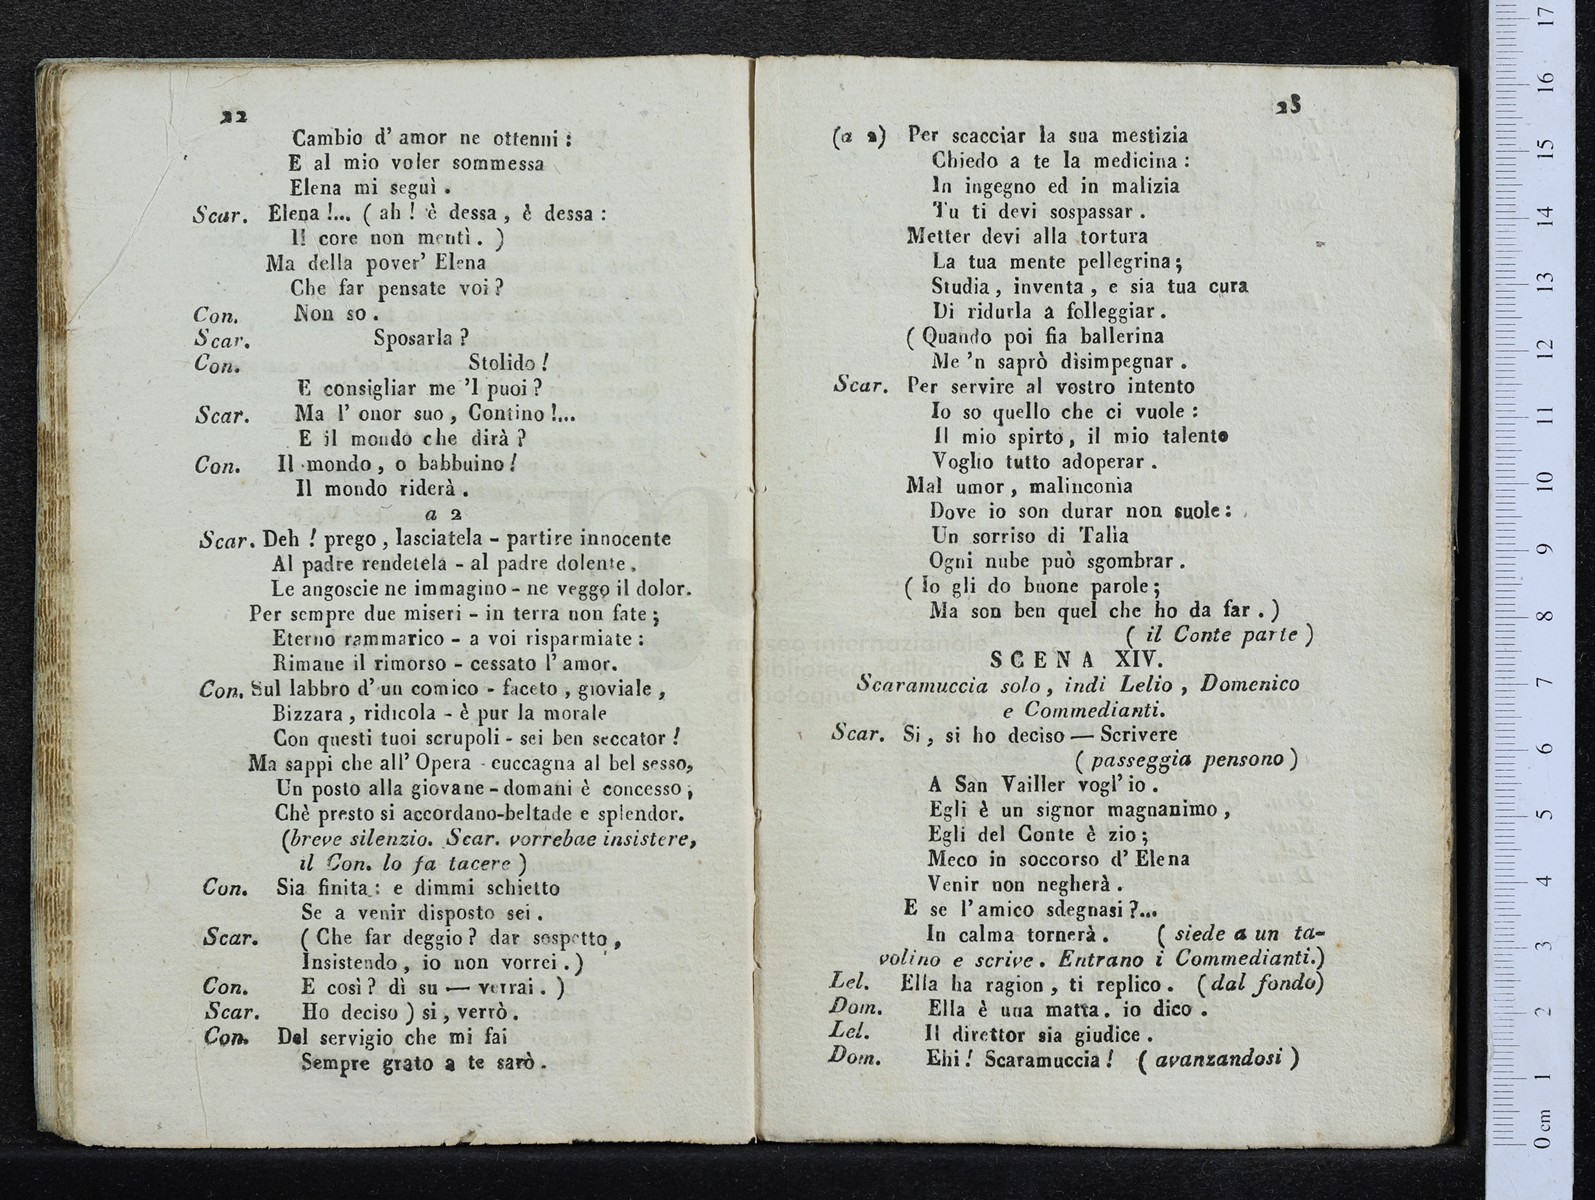 22
Cambio d' amor ne ottenni :
E al mio voler sommessa
Elena mi seguì .
Scar. Elena !... ( ah ! è dessa , è dessa :
Il core non mentì . )
Ma della pover' Elena
Che far pensate voi ?
Con. Non so .
Scar. Sposarla ?
Con. Stolido !
E consigliar me 'l puoi ?
Scar. Ma l' onor suo , Contino !...
E il mondo che dirà ?
Con. Il mondo , o babbuino !
Il mondo riderà .
a 2
Scar. Deh ! prego , lasciatela - partire innocente
Al padre rendetela - al padre dolente ,
Le angoscie ne immagino - ne veggo il dolor.
Per sempre due miseri - in terra non fate ;
Eterno rammarico - a voi risparmiate :
Rimane il rimorso - cessato l' amor.
Con. Sul labbro d' un comico - faceto , gioviale ,
Bizzara , ridicola - è pur la morale
Con questi tuoi scrupoli - sei ben seccator !
Ma sappi che all' Opera - cuccagna al bel sesso,
Un posto alla giovane - domani è concesso ;
Chè presto si accordano-beltade e splendor.
(breve silenzio. Scar. vorrebae insistere,
il Con. lo fa tacere )
Con. Sia finita : e dimmi schietto
Se a venir disposto sei .
Scar. ( Che far deggio ? dar sospetto ,
Insistendo , io non vorrei . )
Con. E così ? dì su — verrai . )
Scar. Ho deciso ) si , verrò .
Con. Del servigio che mi fai
Sempre grato a te sarò .
23
(a 2) Per scacciar la sua mestizia
Chiedo a te la medicina :
In ingegno ed in malizia
Tu ti devi sospassar .
Metter devi alla tortura
La tua mente pellegrina ;
Studia , inventa , e sia tua cura
Di ridurla a folleggiar .
( Quando poi fia ballerina
Me 'n saprò disimpegnar .
Scar. Per servire al vostro intento
Io so quello che ci vuole :
Il mio spirto , il mio talento
Voglio tutto adoperar .
Mal umor , malinconia
Dove io son durar non suole :
Un sorriso di Talìa
Ogni nube può sgombrar .
( Io gli do buone parole ;
Ma son ben quel che ho da far . )
( il Conte parte )
SCENA XIV.
Scaramuccia solo , indi Lelio , Domenico
e Commedianti.
Scar. Si , si ho deciso — Scrivere
( passeggia pensono )
A San Vailler vogl' io .
Egli è un signor magnanimo ,
Egli del Conte è zio ;
Meco in soccorso d' Elena
Venir non negherà .
E se l' amico sdegnasi ?...
In calma tornerà . ( siede a un ta-
volino e scrive . Entrano i Commedianti.)
Lel. Ella ha ragion , ti replico . (dal fondo)
Dom. Ella è una matta . io dico .
Lel. Il direttor sia giudice .
Dom. Ehi ! Scaramuccia ! ( avanzandosi )
museo internazionale
e biblioteca della musica
di bologna
0 cm 1 2 3 4 5 6 7 8 9 10 11 12 13 14 15 16 17